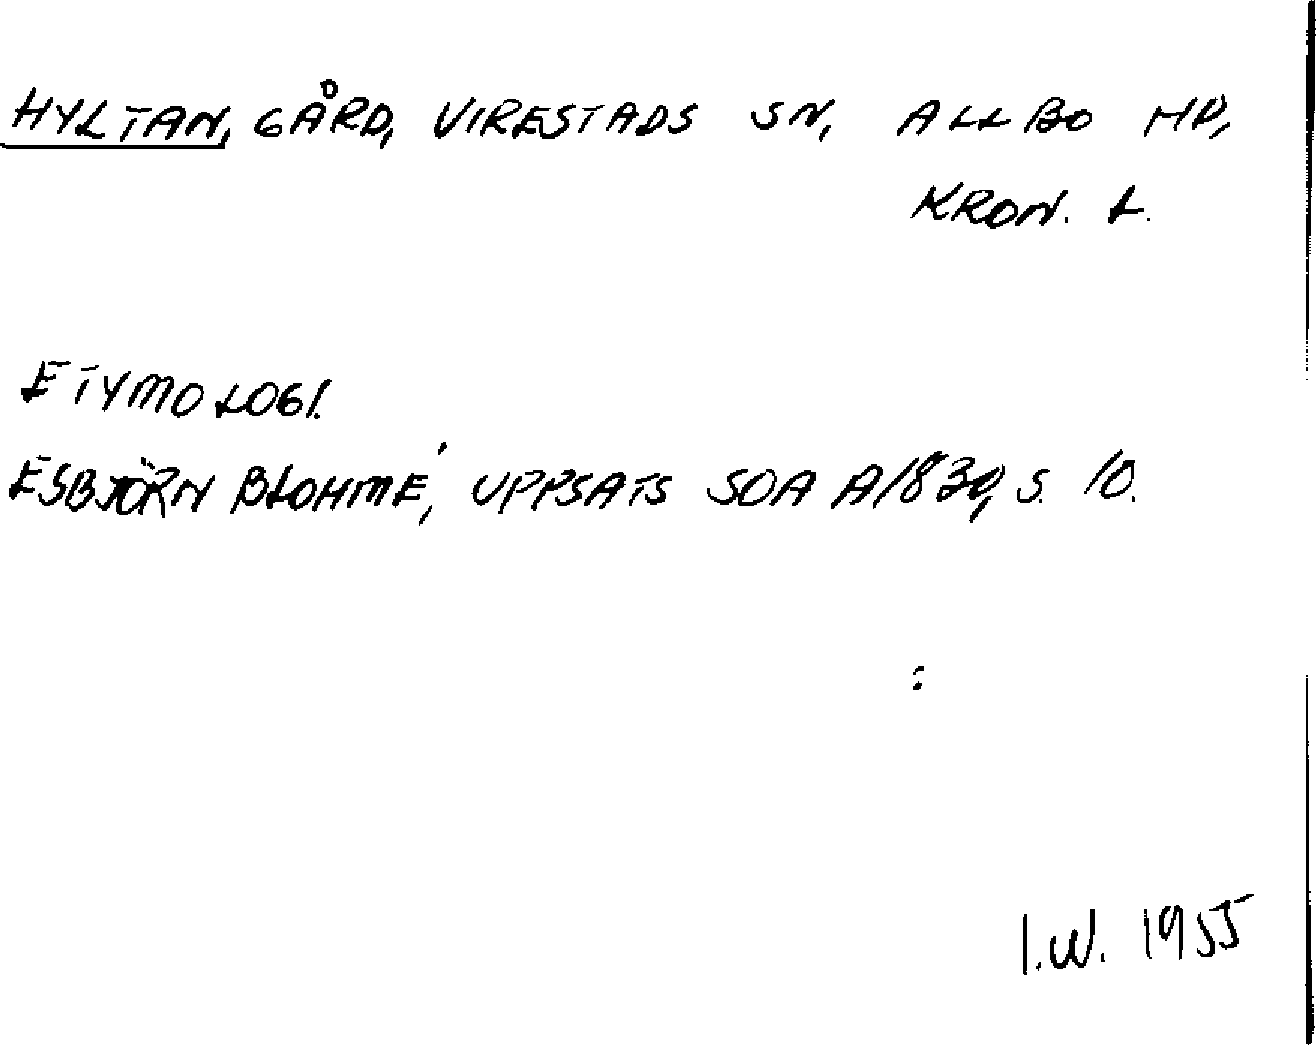 HYLTAN, GÅRD, VIRESTADS SN, ALLBO HD,
KRON. L.
ETYMOLOGI.
ESBJÖRN BLOHMÉ, UPPSATS SOA A1839, S. 10.
I.W. 1955